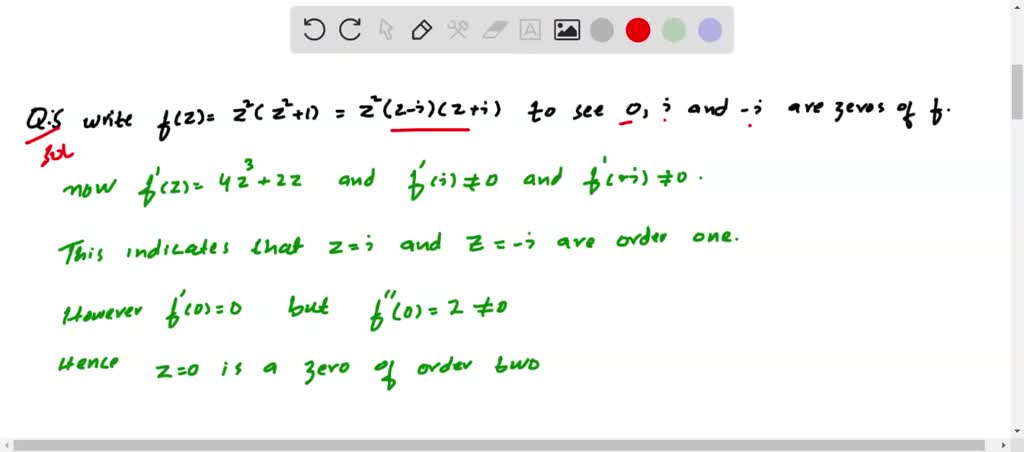 Q:5 write f(z) = z²(z²+1) = z²(z-i)(z+i) to see 0, i and -i are zeros of f.
Sol
now f'(z) = 4z³+2z and f'(i) ≠ 0 and f'(-i) ≠ 0.
This indicates that z=i and z=-i are order one.
However f'(0)=0 but f''(0)=2 ≠0
Hence z=0 is a zero of order two